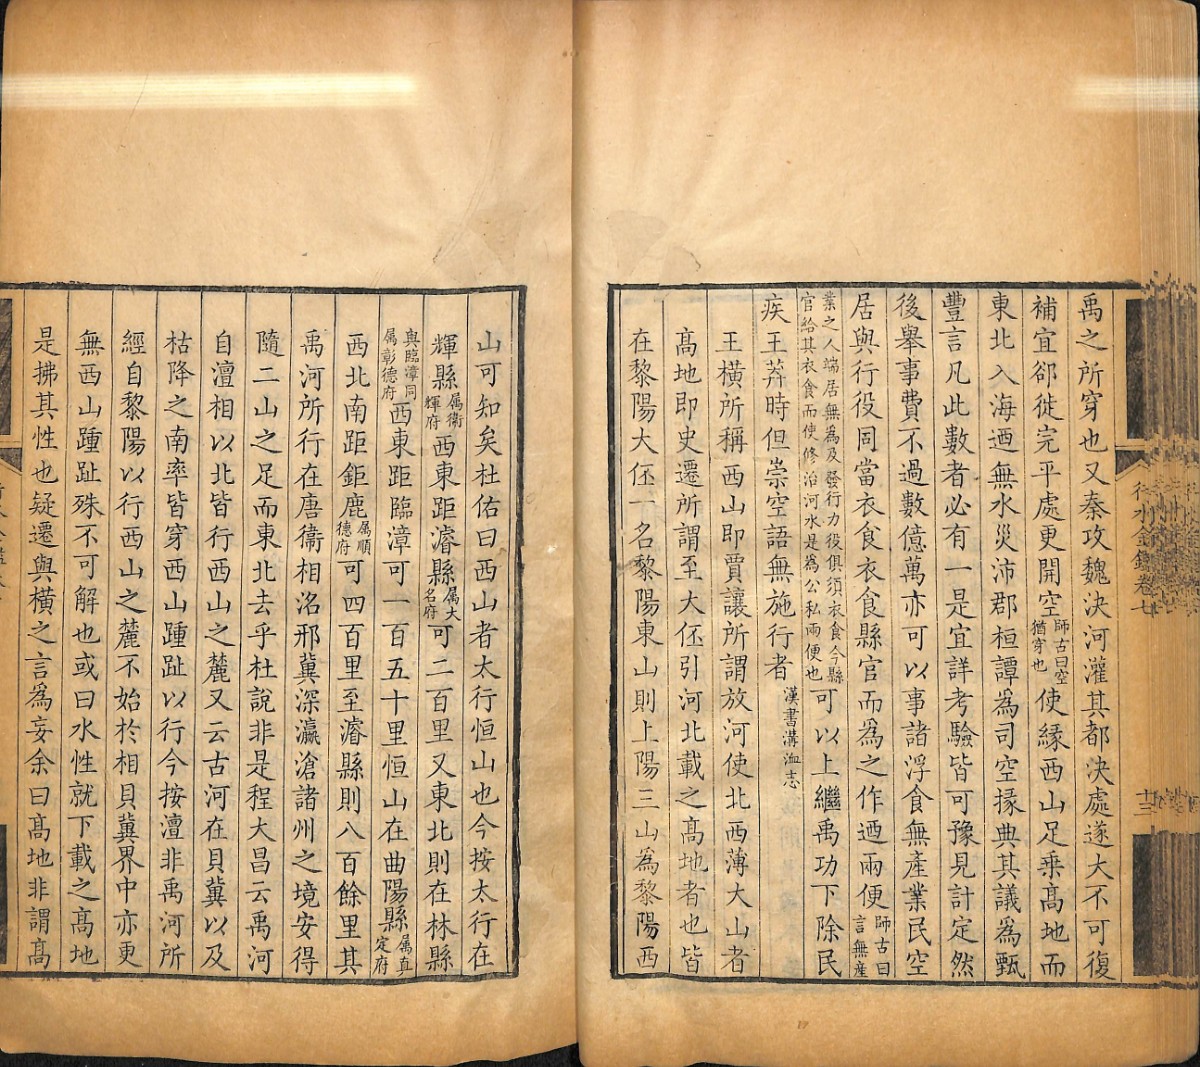 行水金鑑卷七
十三
禹之所穿也又秦攻魏決河灌其都決處遂大不可復
補宜卻徙完平處更開空師古曰空猶穿也使緣西山足乗髙地而
東北入海迺無水災沛郡桓譚為司空掾典其議為甄
豐言凡此數者必有一是宜詳考驗皆可豫見計定然
後舉事費不過數億萬亦可以事諸浮食無產業民空
居與行役同當衣食衣食縣官而為之作迺兩便師古曰言無產
業之人端居無為及發行力役俱須衣食今縣官給其衣食而使修治河水是為公私兩便也可以上繼禹功下除民
疾王莽時但崇空語無施行者漢書溝洫志
王橫所稱西山即賈讓所謂放河使北西薄大山者
髙地即史遷所謂至大伾引河北載之髙地者也皆
在黎陽大伾一名黎陽東山則上陽三山為黎陽西
山可知矣杜佑曰西山者太行恒山也今按太行在
輝縣属衛輝府西東距濬縣属大名府可二百里又東北則在林縣
與臨漳同属彰德府西東距臨漳可一百五十里恒山在曲陽縣属真定府
西北南距鉅鹿属順德府可四百里至濬縣則八百餘里其
禹河所行在唐衞相洺邢冀深瀛滄諸州之境安得
隨二山之足而東北去乎杜說非是程大昌云禹河
自澶相以北皆行西山之麓又云古河在貝冀以及
枯降之南率皆穿西山踵趾以行今按澶非禹河所
經自黎陽以行西山之麓不始於相貝冀界中亦更
無西山踵趾殊不可解也或曰水性就下載之髙地
是拂其性也疑遷與橫之言為妄余曰髙地非謂髙